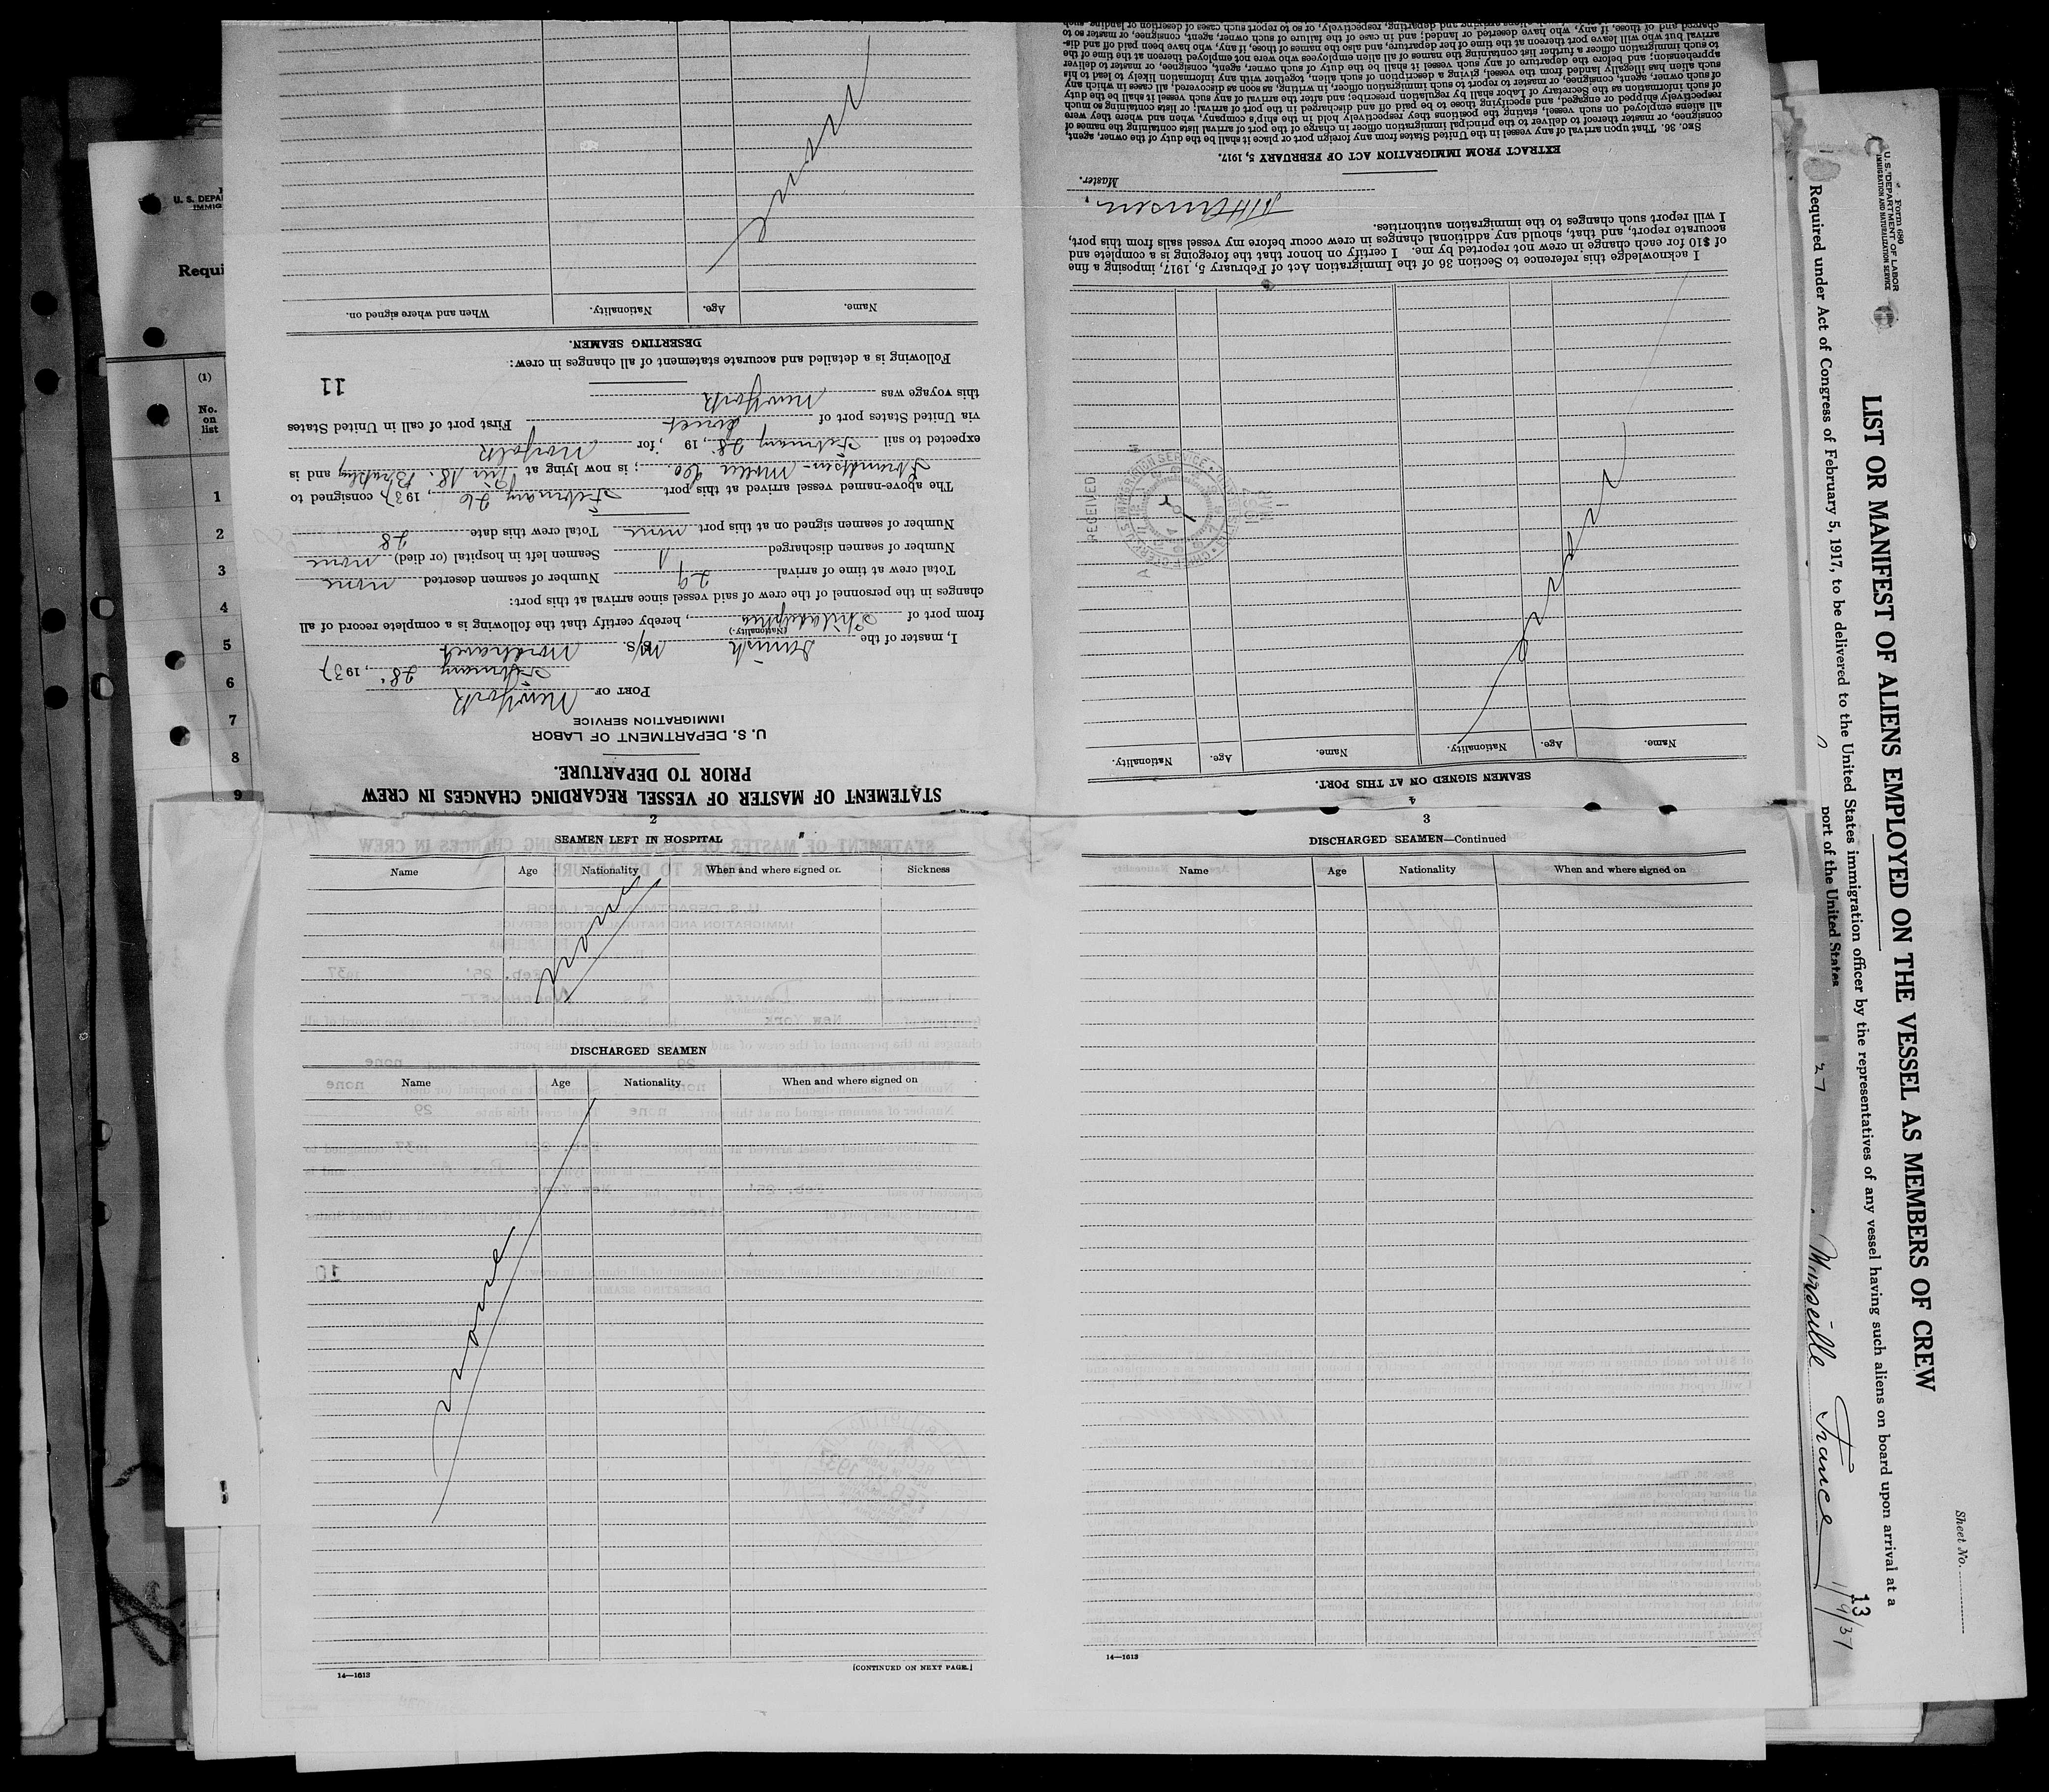 STATEMENT OF MASTER OF VESSEL REGARDING CHANGES IN CREW
PRIOR TO DEPARTURE.
U. S. DEPARTMENT OF LABOR
IMMIGRATION SERVICE
PORT OF New York
February 28', 1937
I, master of the Danish M/S. Nordhavet
(Nationality.)
from port of Philadelphia, hereby certify that the following is a complete record of all
changes in the personnel of the crew of said vessel since arrival at this port:
Total crew at time of arrival 29 Number of seamen deserted none
Number of seamen discharged 1 Seamen left in hospital (or died) none
Number of seamen signed on at this port none Total crew this date 28
The above-named vessel arrived at this port February 26, 1937, consigned to
Funch, Moller Co.; is now lying at Pier 18. Brooklyn and is
expected to sail February 28', 19 , for Norfolk
via United States port of direct First port of call in United States
this voyage was New York
11
Following is a detailed and accurate statement of all changes in crew:
DESERTING SEAMEN.
Name. Age. Nationality. When and where signed on.
none
4
SEAMEN SIGNED ON AT THIS PORT.
Name. Age. Nationality. Name. Age. Nationality.
none
RECEIVED
I acknowledge this reference to Section 36 of the Immigration Act of February 5, 1917, imposing a fine
of $10 for each change in crew not reported by me. I certify on honor that the foregoing is a complete and
accurate report, and that, should any additional changes in crew occur before my vessel sails from this port,
I will report such changes to the immigration authorities.
Master.
EXTRACT FROM IMMIGRATION ACT OF FEBRUARY 5, 1917.
SEC. 36. That upon arrival of any vessel in the United States from any foreign port or place it shall be the duty of the owner, agent,
consignee, or master thereof to deliver to the principal immigration officer in charge of the port of arrival lists containing the names of
all aliens employed on such vessel, stating the positions they respectively hold in the ship's company, when and where they were
respectively shipped or engaged, and specifying those to be paid off and discharged in the port of arrival; or lists containing so much
of such information as the Secretary of Labor shall by regulation prescribe; and after the arrival of any such vessel it shall be the duty
of such owner, agent, consignee, or master to report to such immigration officer, in writing, as soon as discovered, all cases in which any
such alien has illegally landed from the vessel, giving a description of such alien, together with any information likely to lead to his
apprehension; and before the departure of any such vessel it shall be the duty of such owner, agent, consignee, or master to deliver
to such immigration officer a further list containing the names of all alien employees who were not employed thereon at the time of the
arrival but who will leave port thereon at the time of her departure, and also the names of those, if any, who have been paid off and dis-
charged and of those, if any, who have deserted or landed; and in case of the failure of such owner, agent, consignee, or master so to
2
SEAMEN LEFT IN HOSPITAL
Name Age Nationality When and where signed on Sickness
none
DISCHARGED SEAMEN
Name Age Nationality When and where signed on
none
14—1613
[CONTINUED ON NEXT PAGE.]
3
DISCHARGED SEAMEN—Continued
Name Age Nationality When and where signed on
14—1613
U. S. DEPA
IMMIG
Requi
(1)
No.
on
list
1
2
3
4
5
6
7
8
9
Form 680
U. S. DEPARTMENT OF LABOR
IMMIGRATION AND NATURALIZATION SERVICE
Sheet No.
LIST OR MANIFEST OF ALIENS EMPLOYED ON THE VESSEL AS MEMBERS OF CREW
Required under Act of Congress of February 5, 1917, to be delivered to the United States immigration officer by the representatives of any vessel having such aliens on board upon arrival at a
port of the United States
13
27 Marseille France 1/9/37